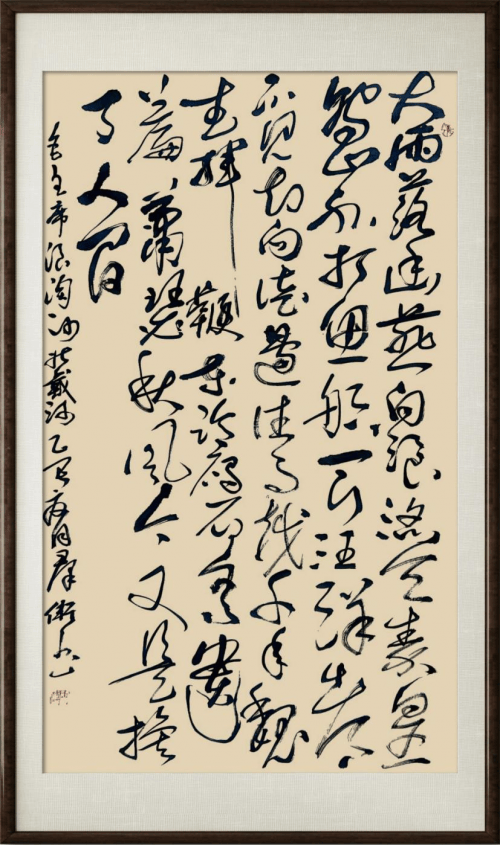 大雨落幽燕白浪滔天秦皇
岛外打鱼船一片汪洋都
不见知向谁边往事越千年魏
武挥鞭东临碣石有遗
篇萧瑟秋风今又是换
了人间
毛主席浪淘沙北戴河乙